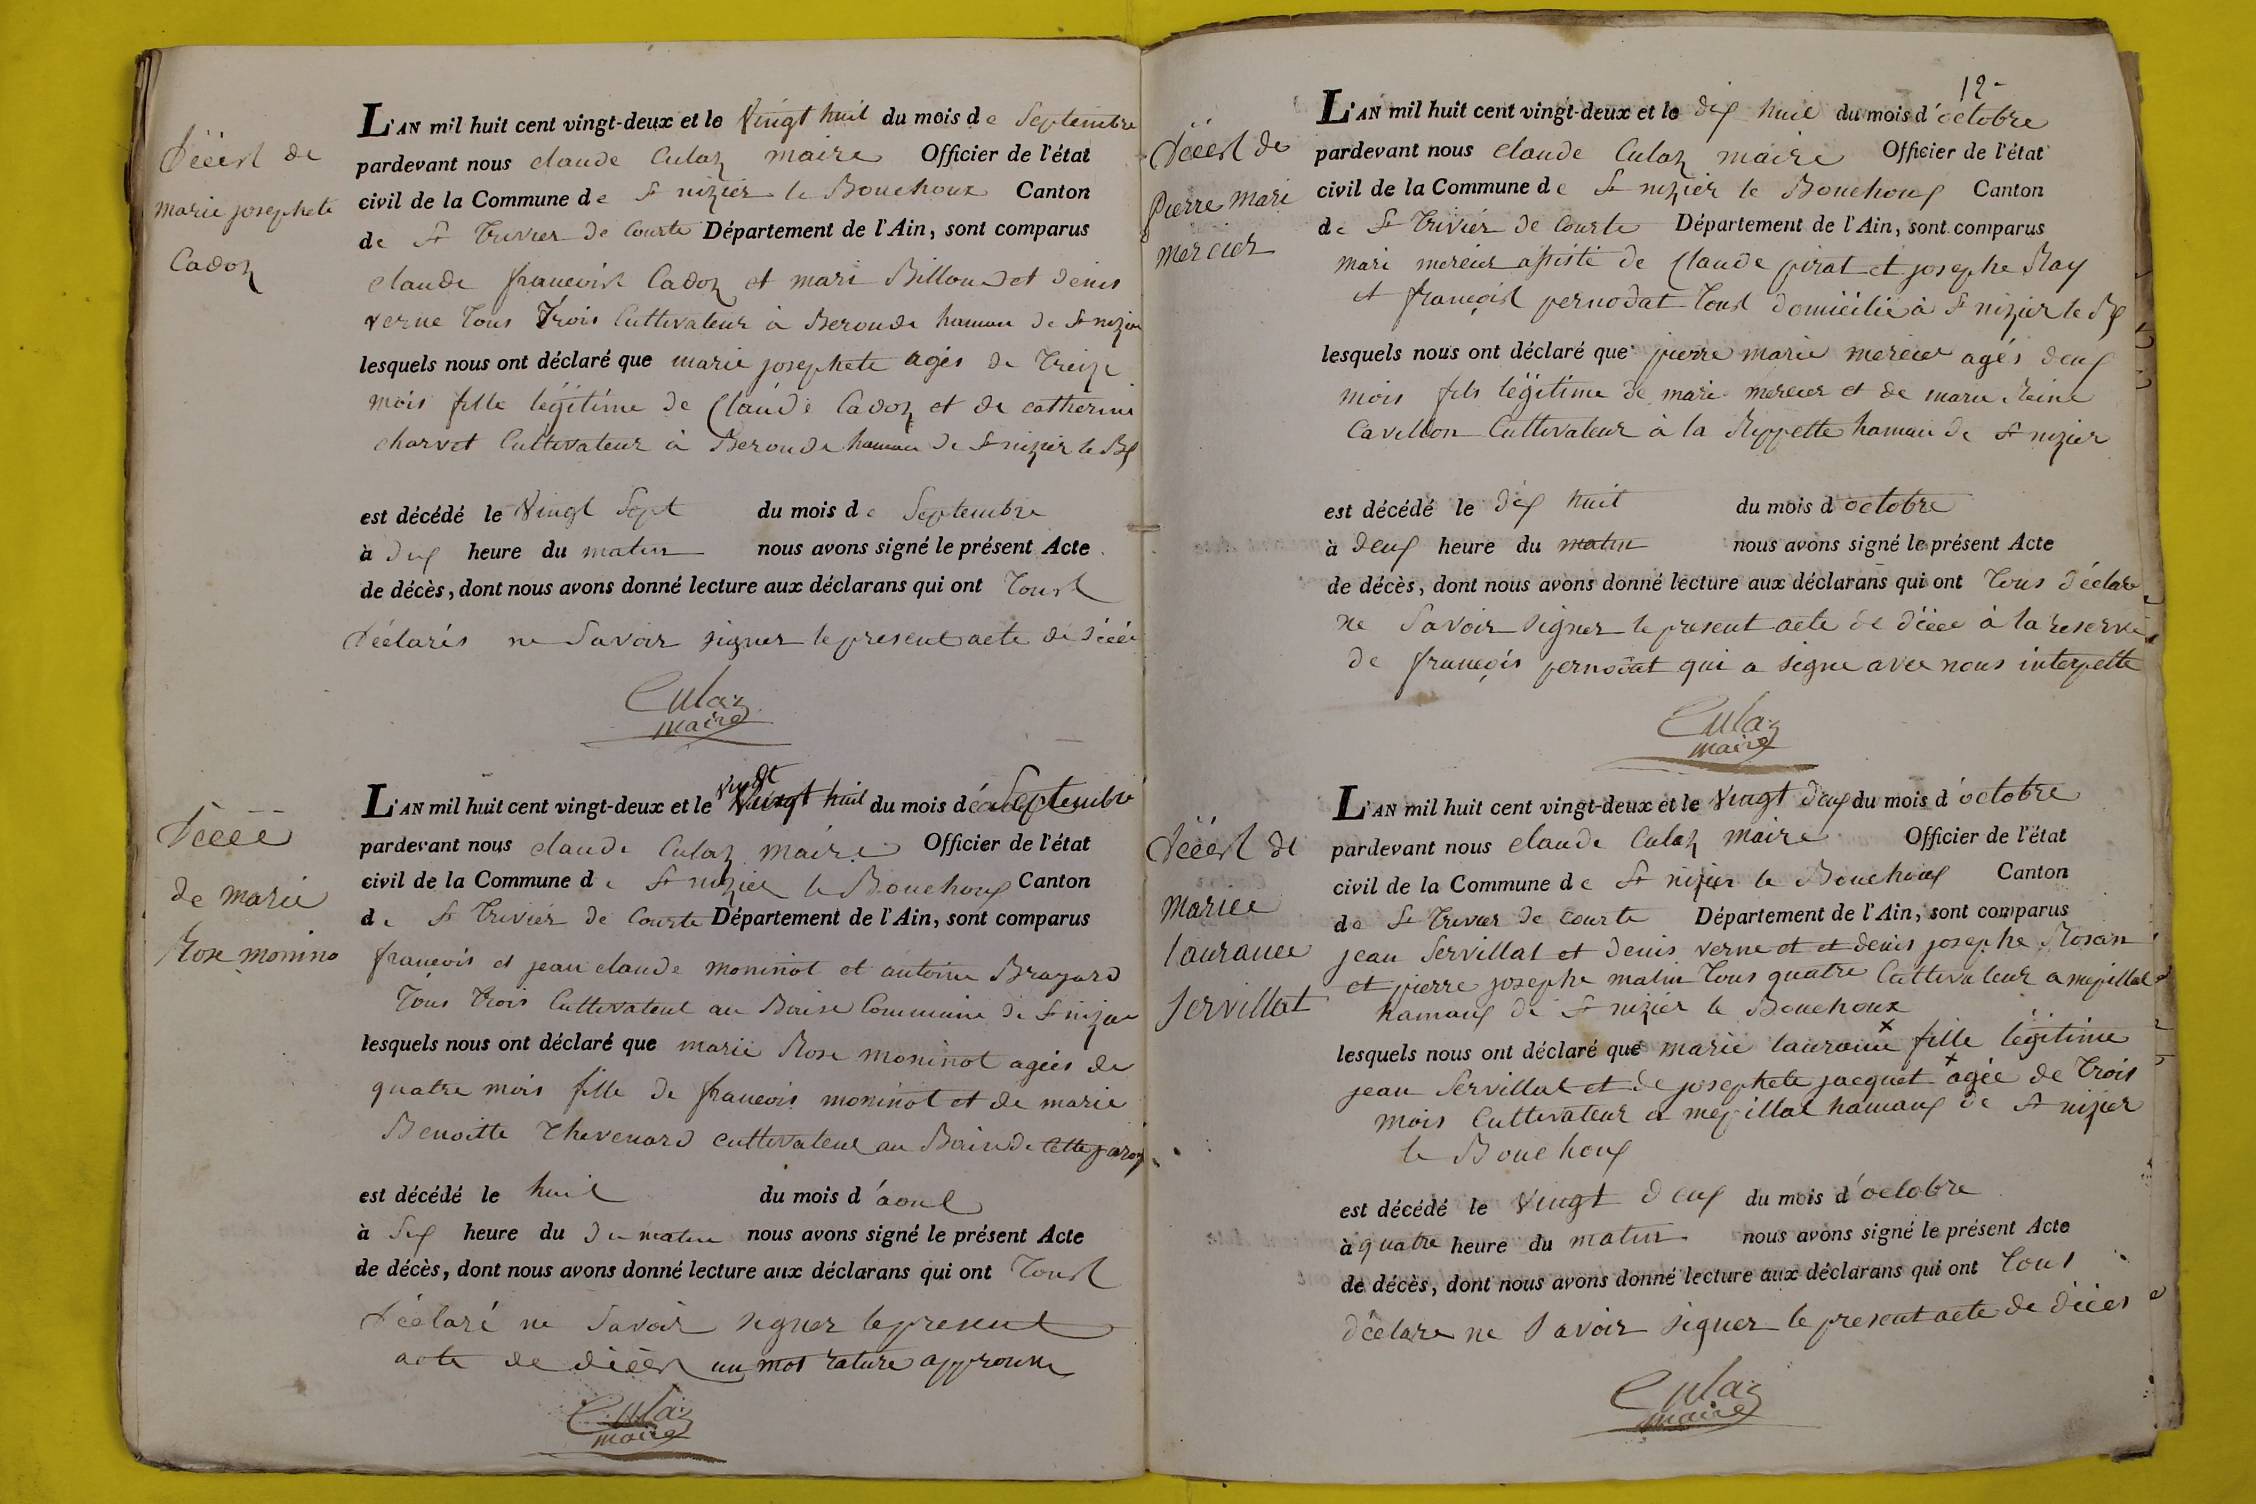 Décest de
marie josephete
Cadoz
L'AN mil huit cent vingt-deux et le Vingt huit du mois de Septembre
pardevant nous claude Culaz maire Officier de l'état
civil de la Commune de St nizier le Bouchoux Canton
de St Trivier de Courte Département de l'Ain, sont comparus
claude francoist Cadoz et mari Billoud et denis
verne Tous Trois Cultivateur à Beronde hamau de St nizier
lesquels nous ont déclaré que marie josephete agés de Treize
mois fille légitime de Claude Cadoz et de catherine
charvet Cultivateur à Beronde hamau de St nizier le Bx
est décédé le Vingt Sept du mois de Septembre
à dix heure du matin nous avons signé le présent Acte
de décès, dont nous avons donné lecture aux déclarans qui ont Toust
déclarés ne Savoir signer le present acte de décée
Culaz
maire
Décéé
de marie
Rose monino
L'AN mil huit cent vingt-deux et le Vingt huit du mois de Septembre
pardevant nous claude Culaz maire Officier de l'état
civil de la Commune de St nizier le Bouchoux Canton
de St Trivier de Courte Département de l'Ain, sont comparus
francois et jean claude moninot et antoine Brayard
Tous Trois Cultivateur au Commune de St nizier
lesquels nous ont déclaré que marie Rose moninot agéés de
quatre mois fille de francois moninot et de marie
Benoitte Thevenard cultivateur au de cette
est décédé le huit du mois d'aout
à Six heure du du matin nous avons signé le présent Acte
de décès, dont nous avons donné lecture aux déclarans qui ont Toust
Déclaré ne Savoir signer le present
acte de décés un mot rature approuve
Culaz
maire
12
Décest de
pierre mari
mercier
L'AN mil huit cent vingt-deux et le dix huit du mois d'octobre
pardevant nous claude Culaz maire Officier de l'état
civil de la Commune de St nizier le Bouchoux Canton
de St Trivier de Courte Département de l'Ain, sont comparus
mari mercier assisté de Claude pirat et josephe Ray
et françoist pernodat Toust domicilié à St nizier le Bx
lesquels nous ont déclaré que pierre marie mercier agés deux
mois fils légitime de mari mercier et de marie Reine
Cavillon Cultivateur à la Rippette hamau de St nizier
est décédé le dix huit du mois d octobre
à deux heure du matin nous avons signé le présent Acte
de décès, dont nous avons donné lecture aux déclarans qui ont Tous déclare
ne Savoir signer le present acte de décee à la reserve
de françois pernodat qui a signe avec nous interpelle
Culaz
maire
Décest de
mariee
laurance
Servillat
L'AN mil huit cent vingt-deux et le Vingt deux du mois d'octobre
pardevant nous claude Culaz maire Officier de l'état
civil de la Commune de St nizier le Bouchoux Canton
de St Trivier de Courte Département de l'Ain, sont comparus
jean Servillat et denis verne et et denis josephe Rosan
et pierre josephe matin Tous quatre Cultivateur a mepillat
hamaux de St nizier le Bouchoux
lesquels nous ont déclaré que marie laurance fille légitime
jean Servillat et de josephete jacquet agée de Trois
mois Cultivateur a mepillat hamaux de St nizier
le Bouchoux
est décédé le Vingt deux du mois d'octobre
à quatre heure du matin nous avons signé le présent Acte
de décès, dont nous avons donné lecture aux déclarans qui ont Tous
déclare ne Savoir signer le present acte de déces
Culaz
maire